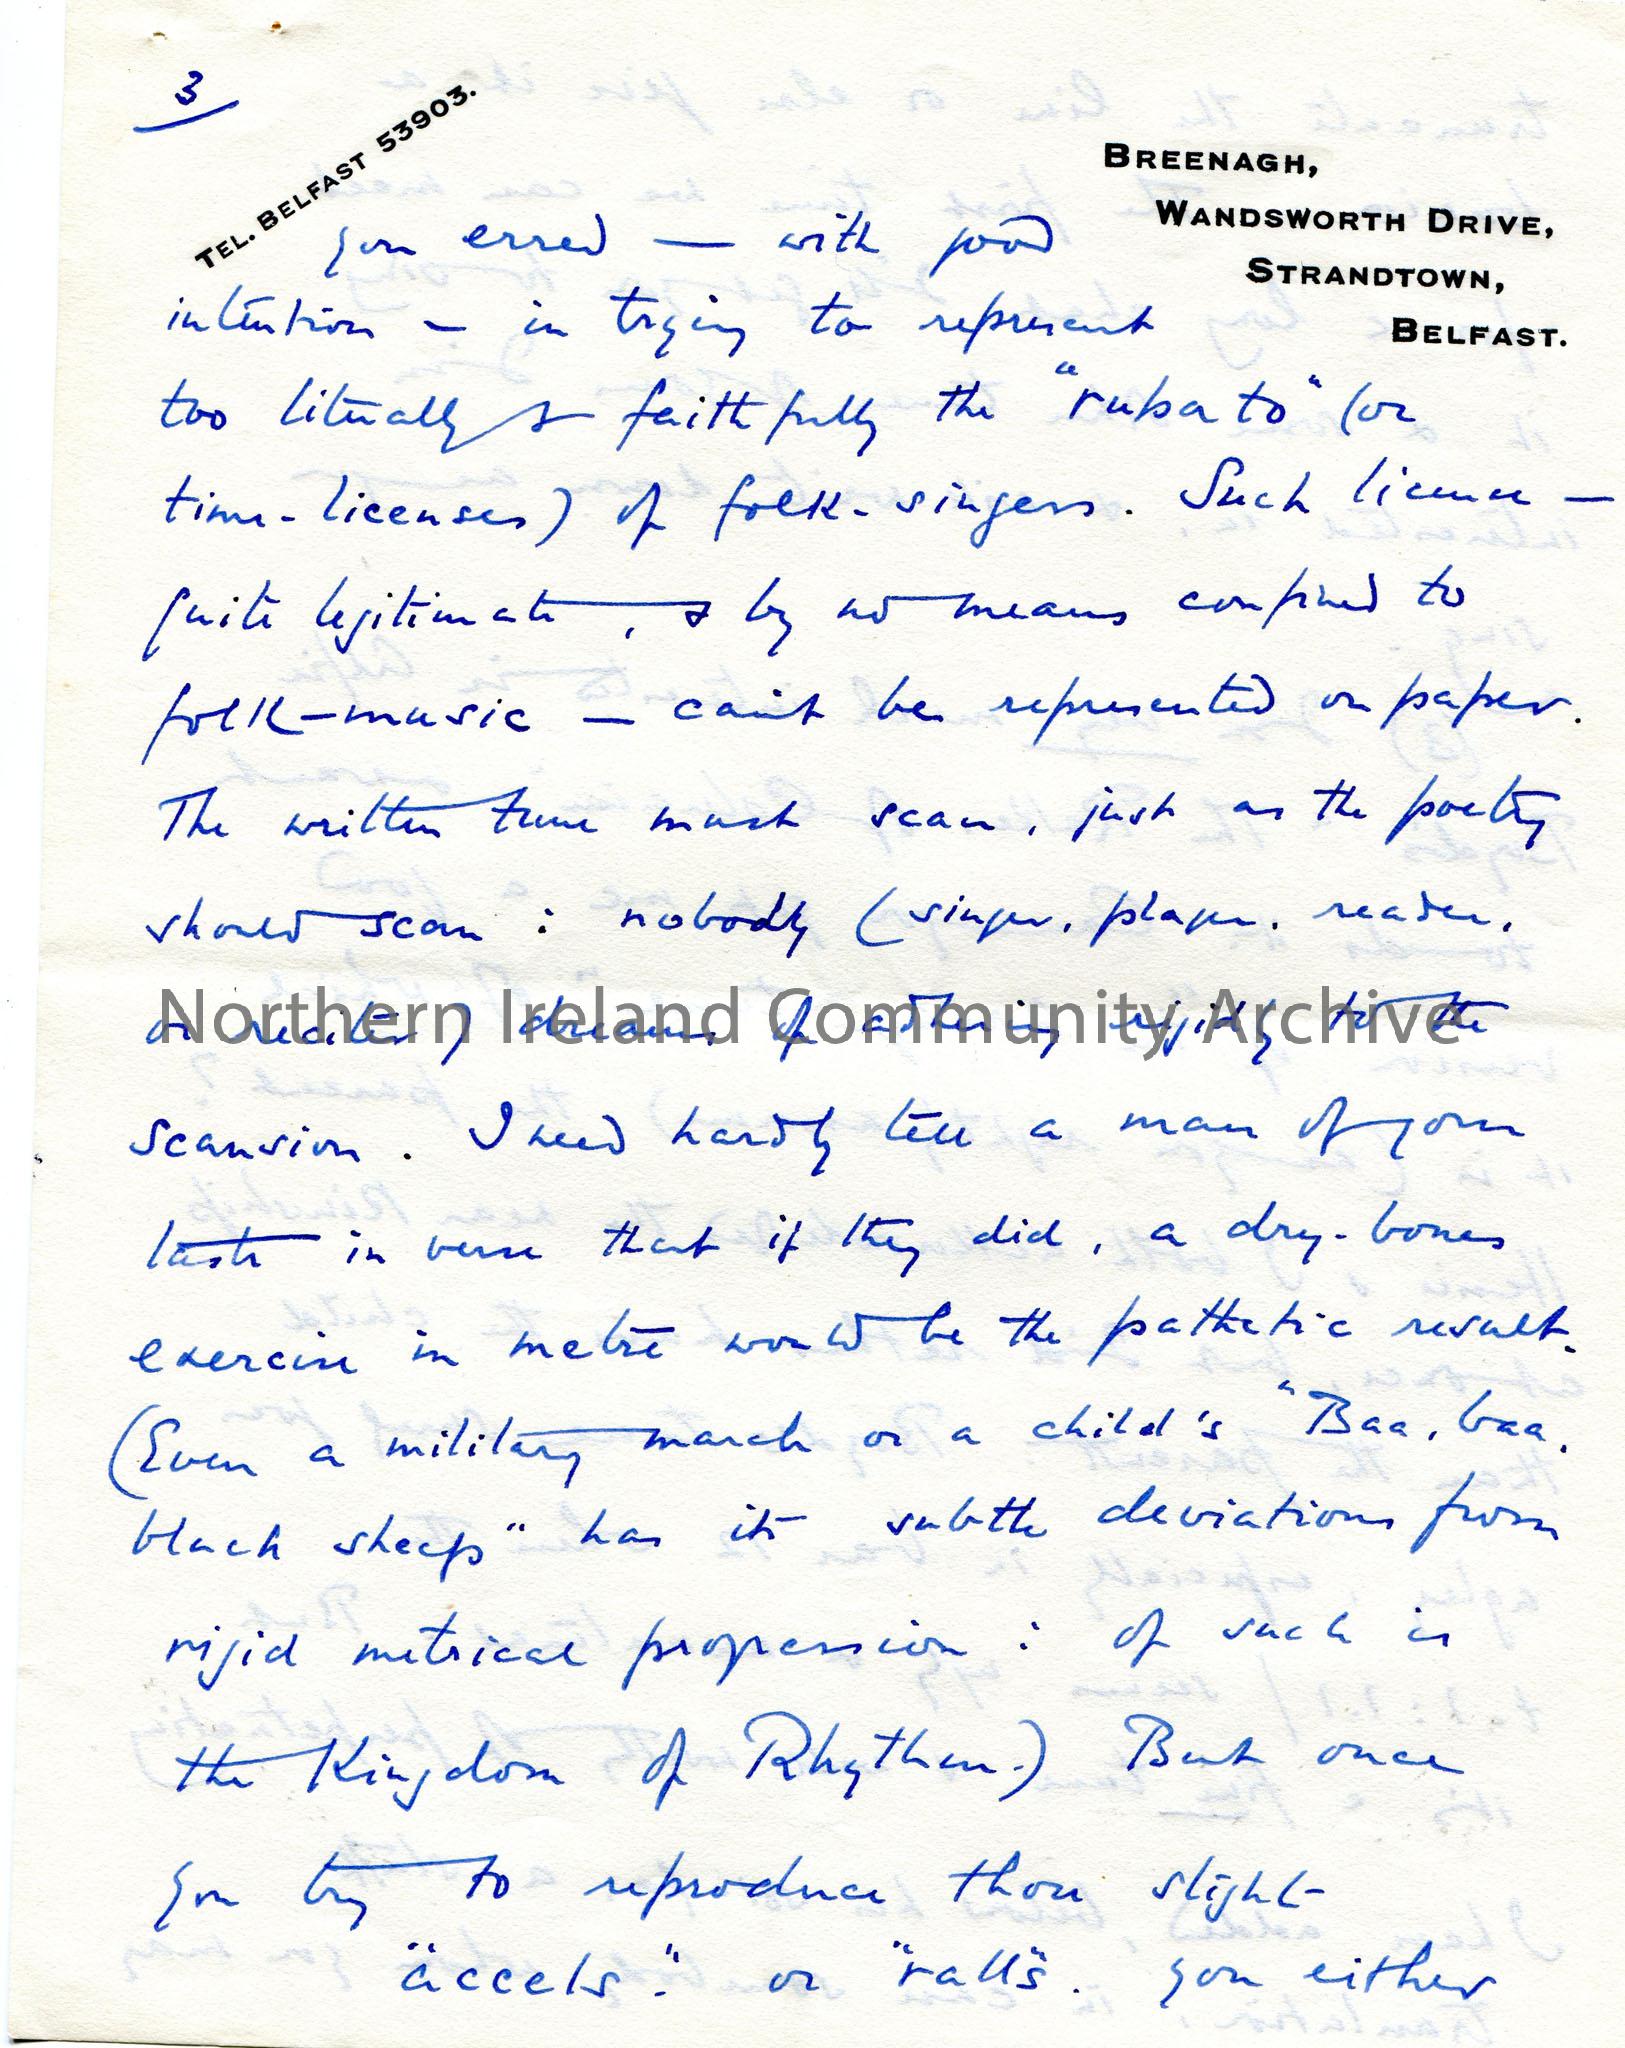 3
TEL. BELFAST 53903.
BREENAGH,
WANDSWORTH DRIVE,
STRANDTOWN,
BELFAST.
you erred — with good
intention — in trying to represent
too literally & faithfully the "rubato" (or
time-licenses) of folk-singers. Such licence —
quite legitimate, & by no means confined to
folk-music — can't be represented on paper.
The written tune must scan, just as the poetry
should scan : nobody (singer, player, reader,
or reciter) dreams of adhering rigidly to the
Northern Ireland Community Archive
scansion. I need hardly tell a man of your
taste in verse that if they did, a dry-bones
exercise in metre would be the pathetic result.
(Even a military march or a child's "Baa, baa,
black sheep" has its subtle deviations from
rigid metrical progression : of such is
the Kingdom of Rhythm.) But once
you try to reproduce those slight
"accels." or "ralls". you either